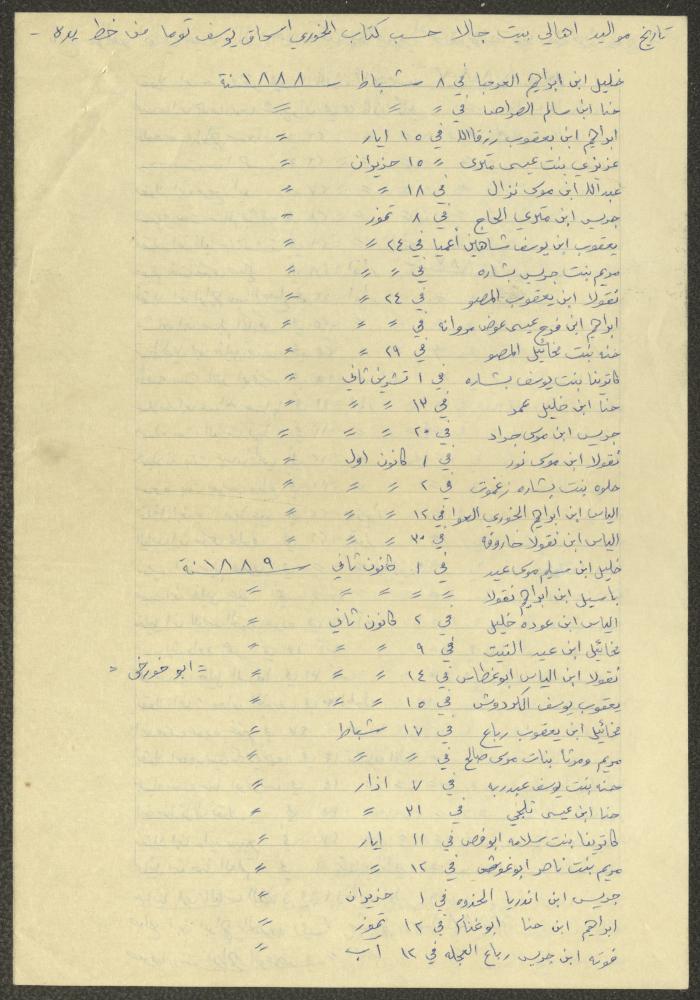 تاريخ مواليد اهالي بيت جالا حسب كتاب الخوري اسحاق يوسف توما من خط يده -
خليل ابن ابراهيم العرجا في ٨ شباط سنة ١٨٨٨
حنا ابن سالم في 〃 〃 〃
ابراهيم ابن يعقوب رزقالله في ١٥ ايار 〃
عزيزي بنت عيسى متري 〃 ١٥ حزيران 〃
عبدالله ابن موسى نزال في ١٨ 〃 〃
جريس ابن متري الحاج في ٨ تموز 〃
يعقوب ابن يوسف شاهين في ٢٤ 〃 〃
مريم بنت جريس بشاره في 〃 〃 〃
نقولا ابن يعقوب المصو في ٢٤ 〃 〃
ابراهيم ابن فرح عيسى عوض في 〃 〃 〃
حنه بنت مخائيل المصو في ٢٩ 〃 〃
كاترينا بنت يوسف بشاره في ١ تشرين ثاني 〃
حنا ابن خليل في ١٣ 〃 〃 〃
جريس ابن موسى جراد في ٢٥ 〃 〃 〃
نقولا ابن موسى نور في ١ كانون اول 〃
حلوه بنت بشاره زغموت في ٢ 〃 〃 〃
الياس ابن ابراهيم الخوري في ١٢ 〃 〃 〃
الياس ابن نقولا في ٣٠ 〃 〃 〃
خليل ابن موسى عيد في ١ كانون ثاني سنة ١٨٨٩
باسيل ابن ابراهيم نقولا 〃 〃 〃 〃 〃
الياس ابن عوده خليل في ٢ كانون ثاني 〃
مخائيل ابن عيد في ٩ 〃 〃 〃
نقولا ابن الياس ابوغطاس في ١٤ 〃 〃 〃
يعقوب يوسف في ١٥ 〃 〃 〃
مخائيل ابن يعقوب رباع في ١٧ شباط 〃
مريم ومرثا بنات موسى صالح في 〃 〃 〃
حنه بنت يوسف عبدربه في ٧ اذار 〃
حنا ابن عيسى ثلجي في ٣١ 〃 〃
كاترينا بنت سلامه في ١١ ايار 〃
مريم بنت ناصر ابوغوش في ١٢ 〃 〃
جريس ابن اندريا في ١ حزيران 〃
ابراهيم ابن حنا ابوغنام في ١٢ تموز 〃
ابن جريس رباع في ١٢ آب 〃